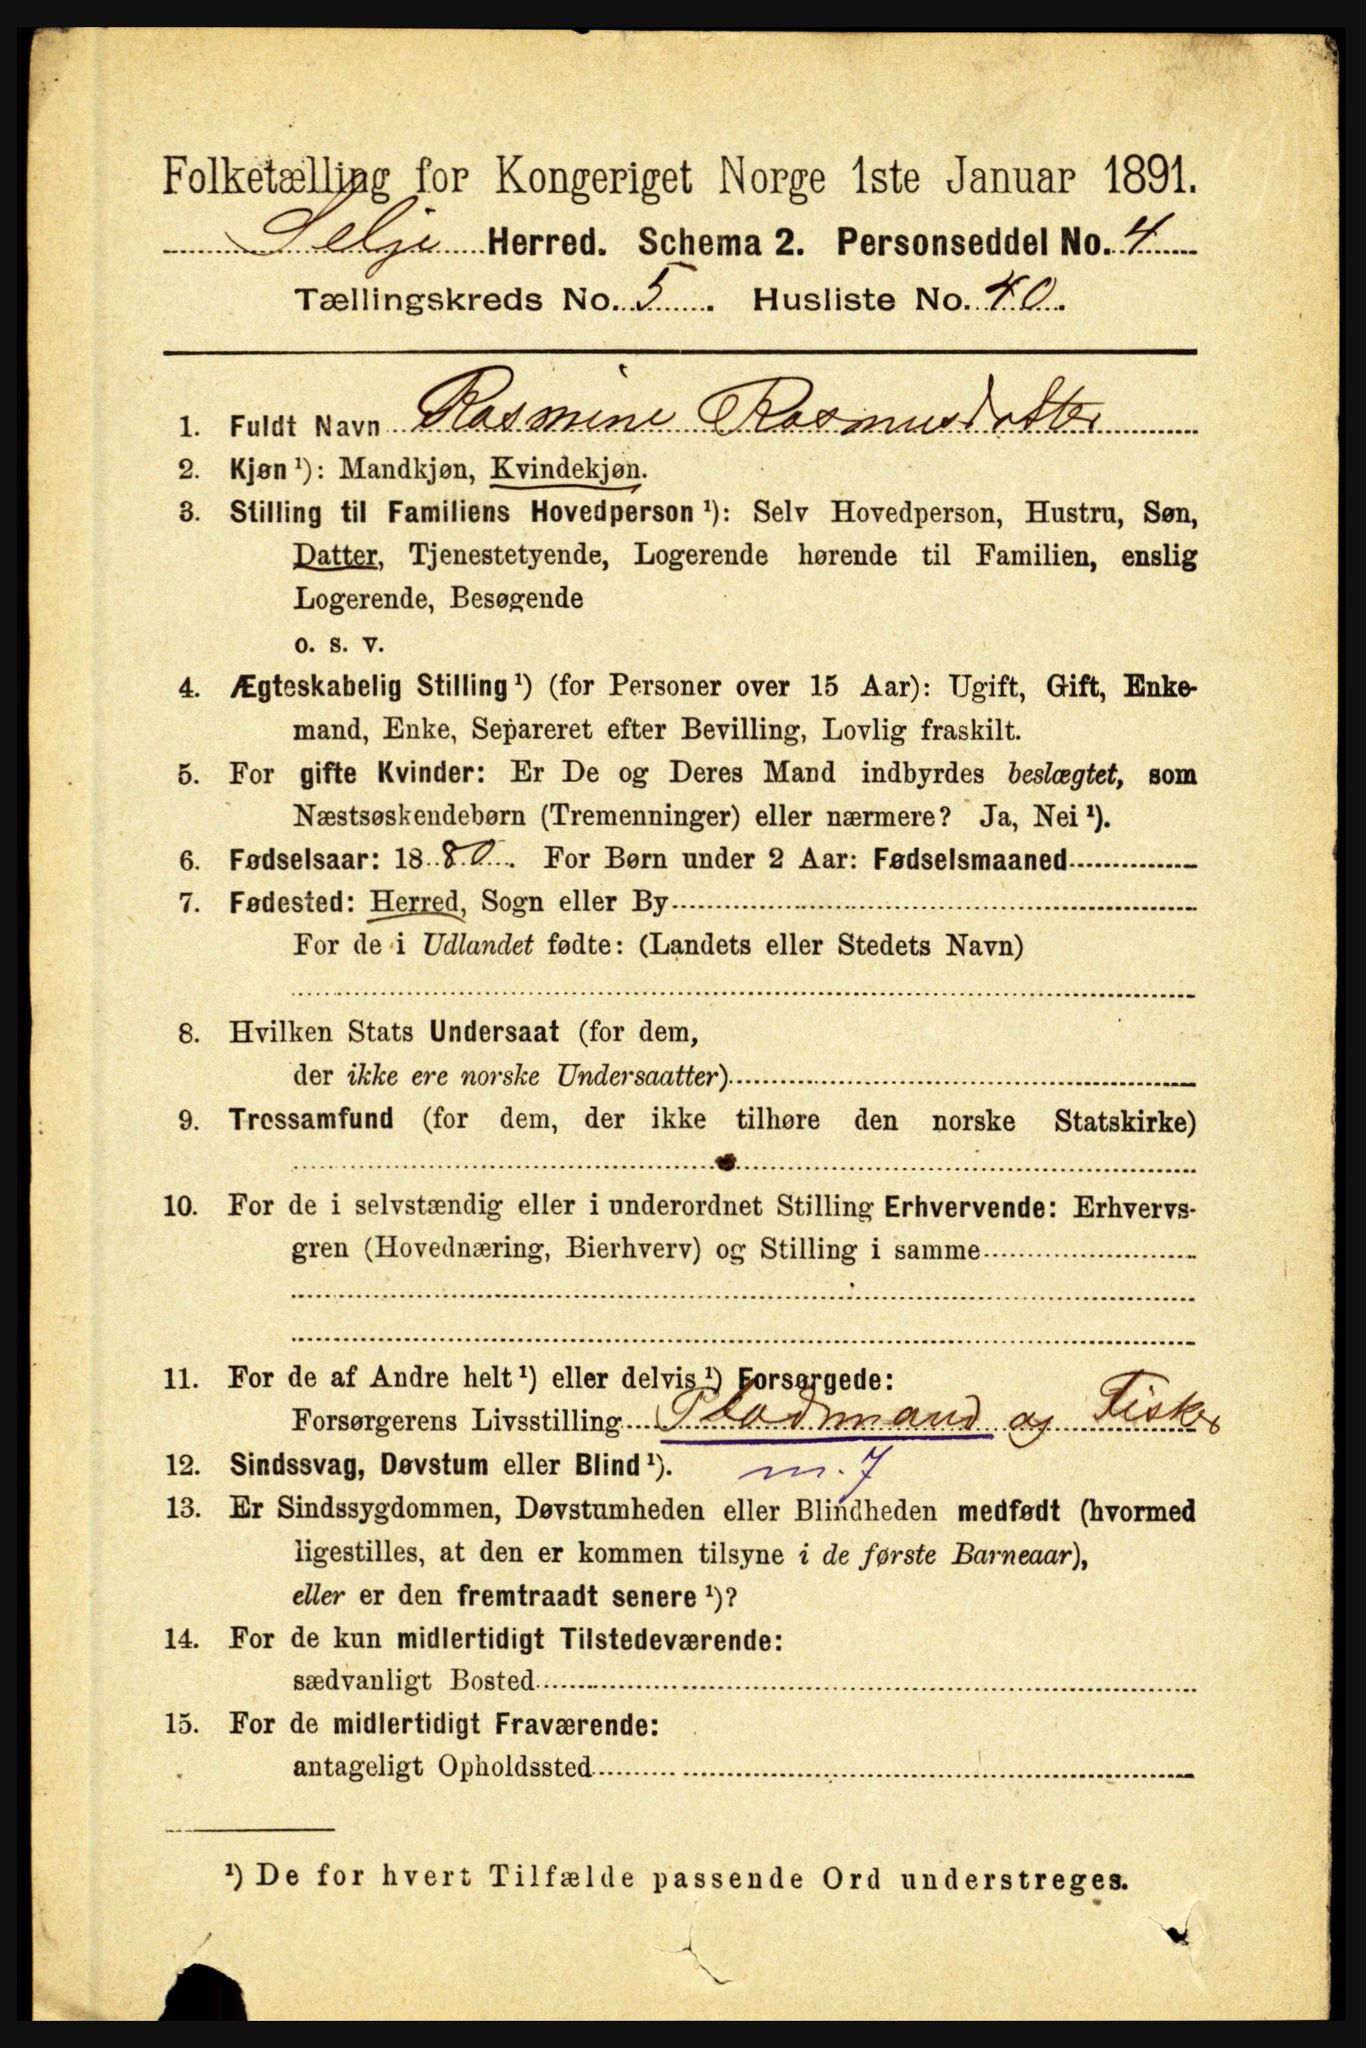 Folketælling for Kongeriget Norge 1ste Januar 1891.
Selje Herred. Schema 2. Personseddel No. 4
Tællingskreds No. 5. Husliste No. 40.
1. Fuldt Navn Rasmine Rasmusdatter
2. Kjøn ¹): Mandkjøn, Kvindekjøn.
3. Stilling til Familiens Hovedperson ¹): Selv Hovedperson, Hustru, Søn,
Datter, Tjenestetyende, Logerende hørende til Familien, enslig
Logerende, Besøgende
o. s. v.
4. Ægteskabelig Stilling ¹) (for Personer over 15 Aar): Ugift, Gift, Enke-
mand, Enke, Separeret efter Bevilling, Lovlig fraskilt.
5. For gifte Kvinder: Er De og Deres Mand indbyrdes beslægtet, som
Næstsøskendebørn (Tremenninger) eller nærmere? Ja, Nei ¹).
6. Fødselsaar: 1880. For Børn under 2 Aar: Fødselsmaaned
7. Fødested: Herred, Sogn eller By
For de i Udlandet fødte: (Landets eller Stedets Navn)
8. Hvilken Stats Undersaat (for dem,
der ikke ere norske Undersaatter)
9. Trossamfund (for dem, der ikke tilhøre den norske Statskirke)
10. For de i selvstændig eller i underordnet Stilling Erhvervende: Erhvervs-
gren (Hovednæring, Bierhverv) og Stilling i samme
11. For de af Andre helt ¹) eller delvis ¹) Forsørgede:
Forsørgerens Livsstilling Pladsmand og Fisker
12. Sindssvag, Døvstum eller Blind ¹). m. 7
13. Er Sindssygdommen, Døvstumheden eller Blindheden medfødt (hvormed
ligestilles, at den er kommen tilsyne i de første Barneaar),
eller er den fremtraadt senere ¹)?
14. For de kun midlertidigt Tilstedeværende:
sædvanligt Bosted
15. For de midlertidigt Fraværende:
antageligt Opholdssted
¹) De for hvert Tilfælde passende Ord understreges.